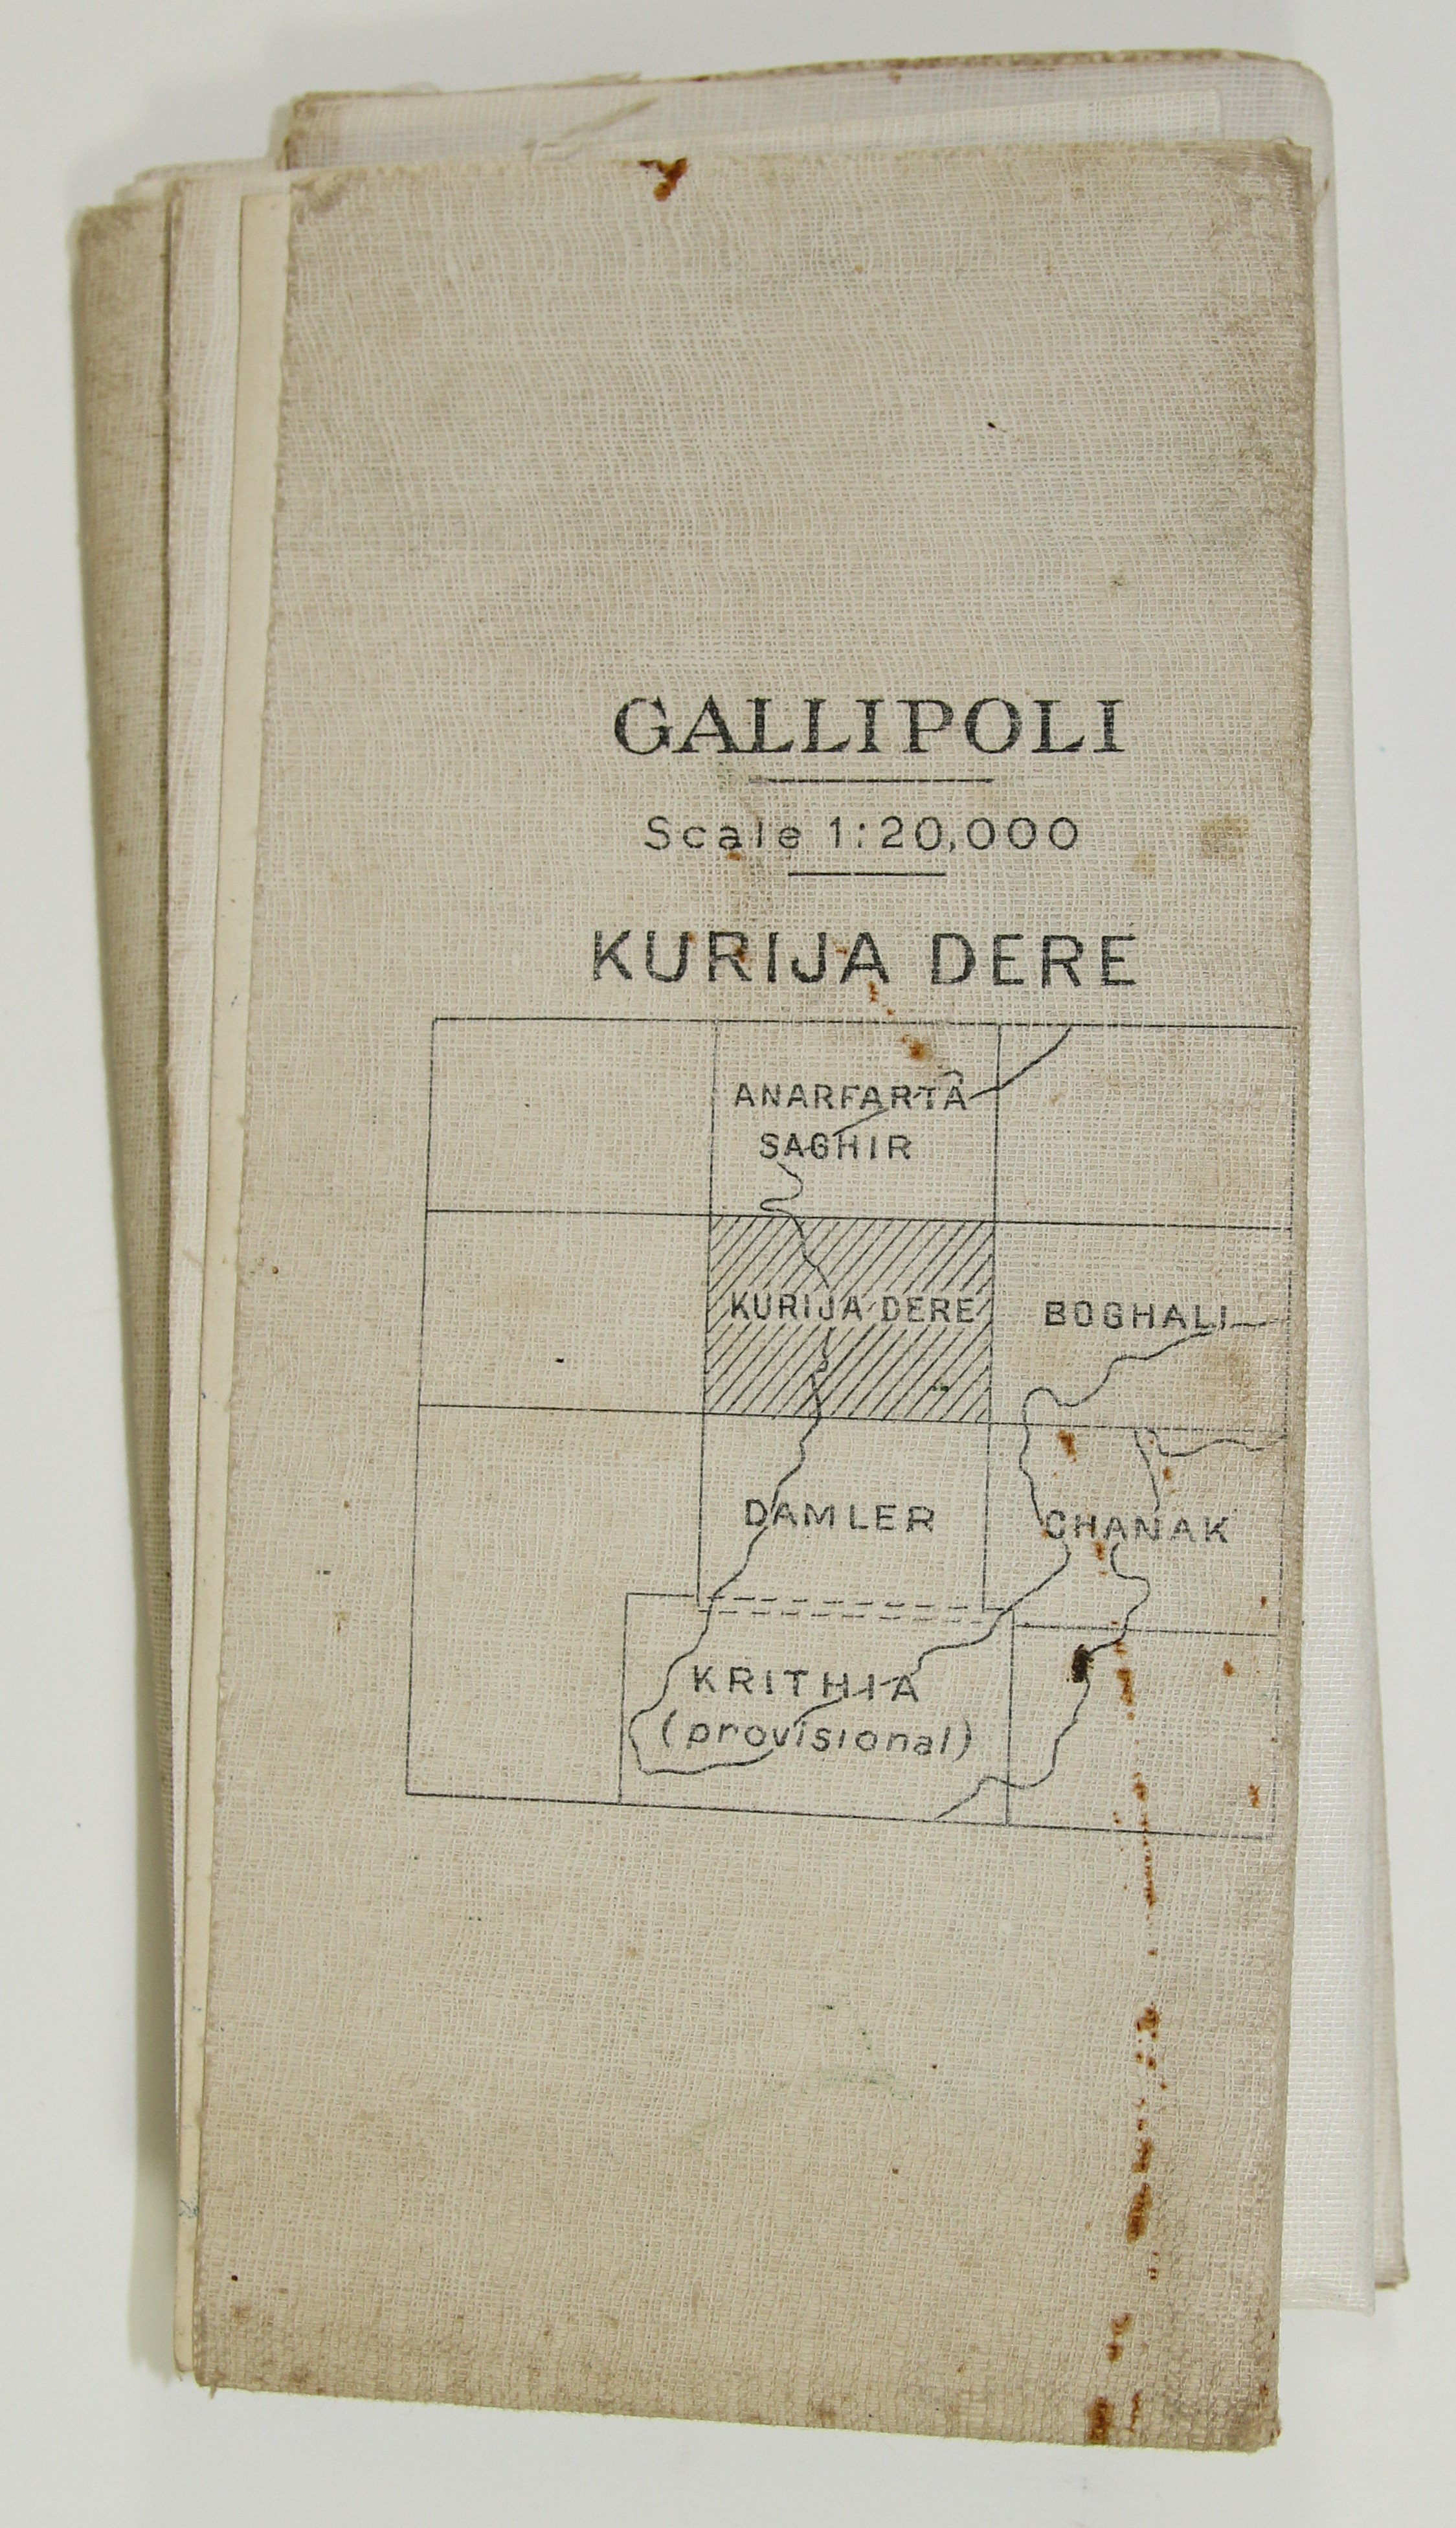 GALLIPOLI
Scale 1:20,000
KURIJA DERE
ANARFARTA
SAGHIR
KURIJA DERE
BOGHALI
DAMLER
CHANAK
KRITHIA
(provisional)